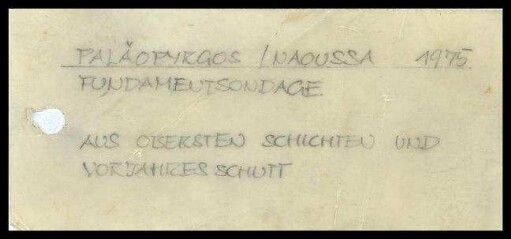 PALÄOPYRGOS / NAOUSSA 1975
FUNDAMENTSONDAGE
AUS OBERSTEN SCHICHTEN UND
VORJAHRESSCHUTT